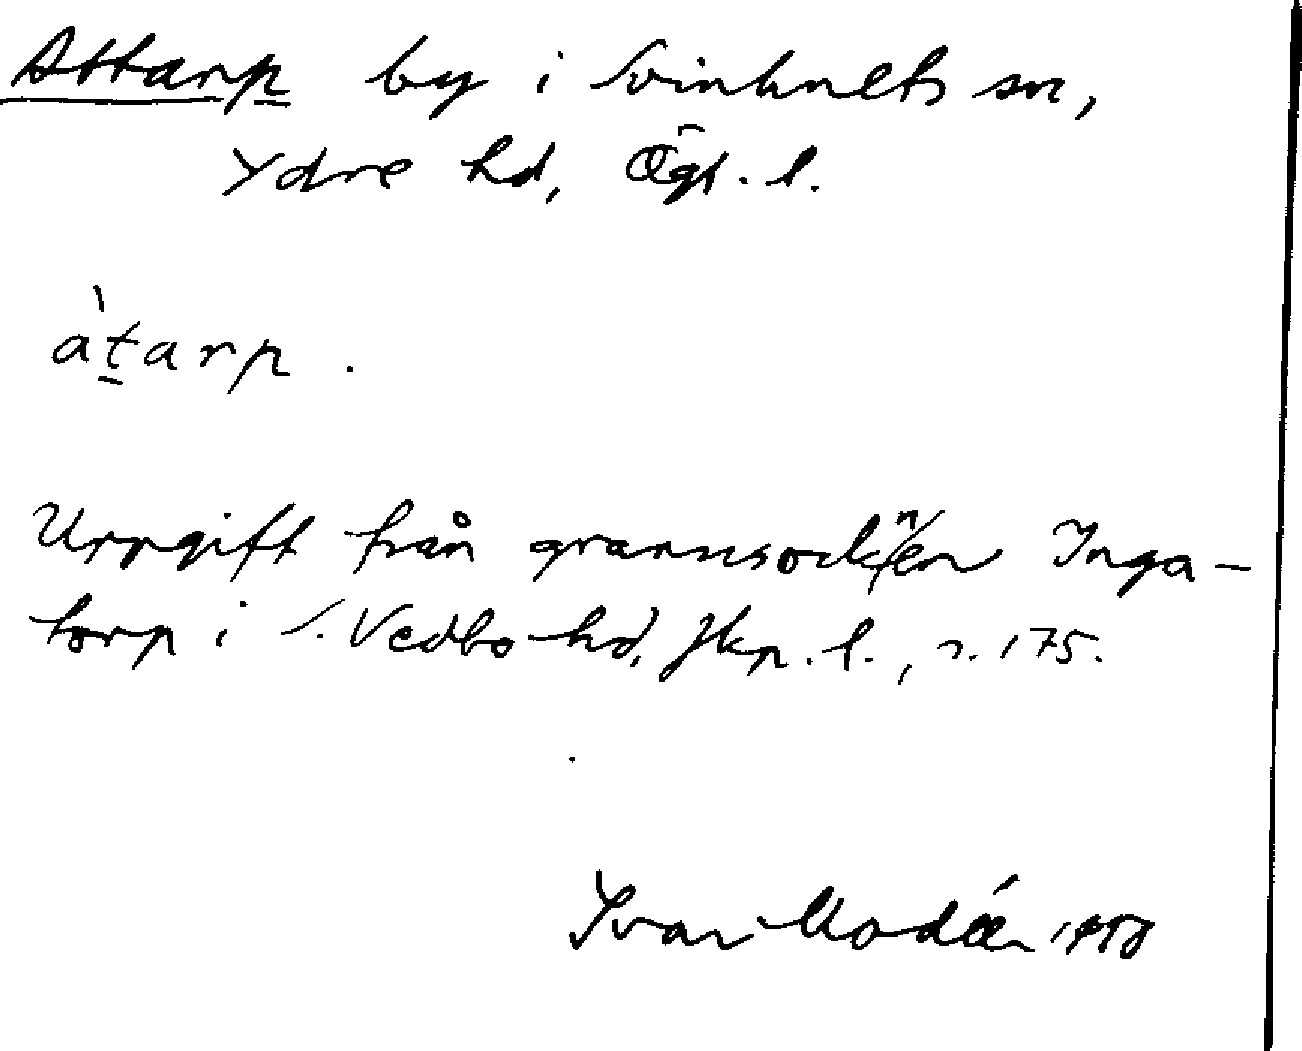 Attarp by i Svinhults sn,
Ydre hd, Ögl. l.
àtarp.
Uppgift från grannsocknen Inga-
torp i S. Vedbo hd, Jkp. l., s. 175.
Ivar Modéer